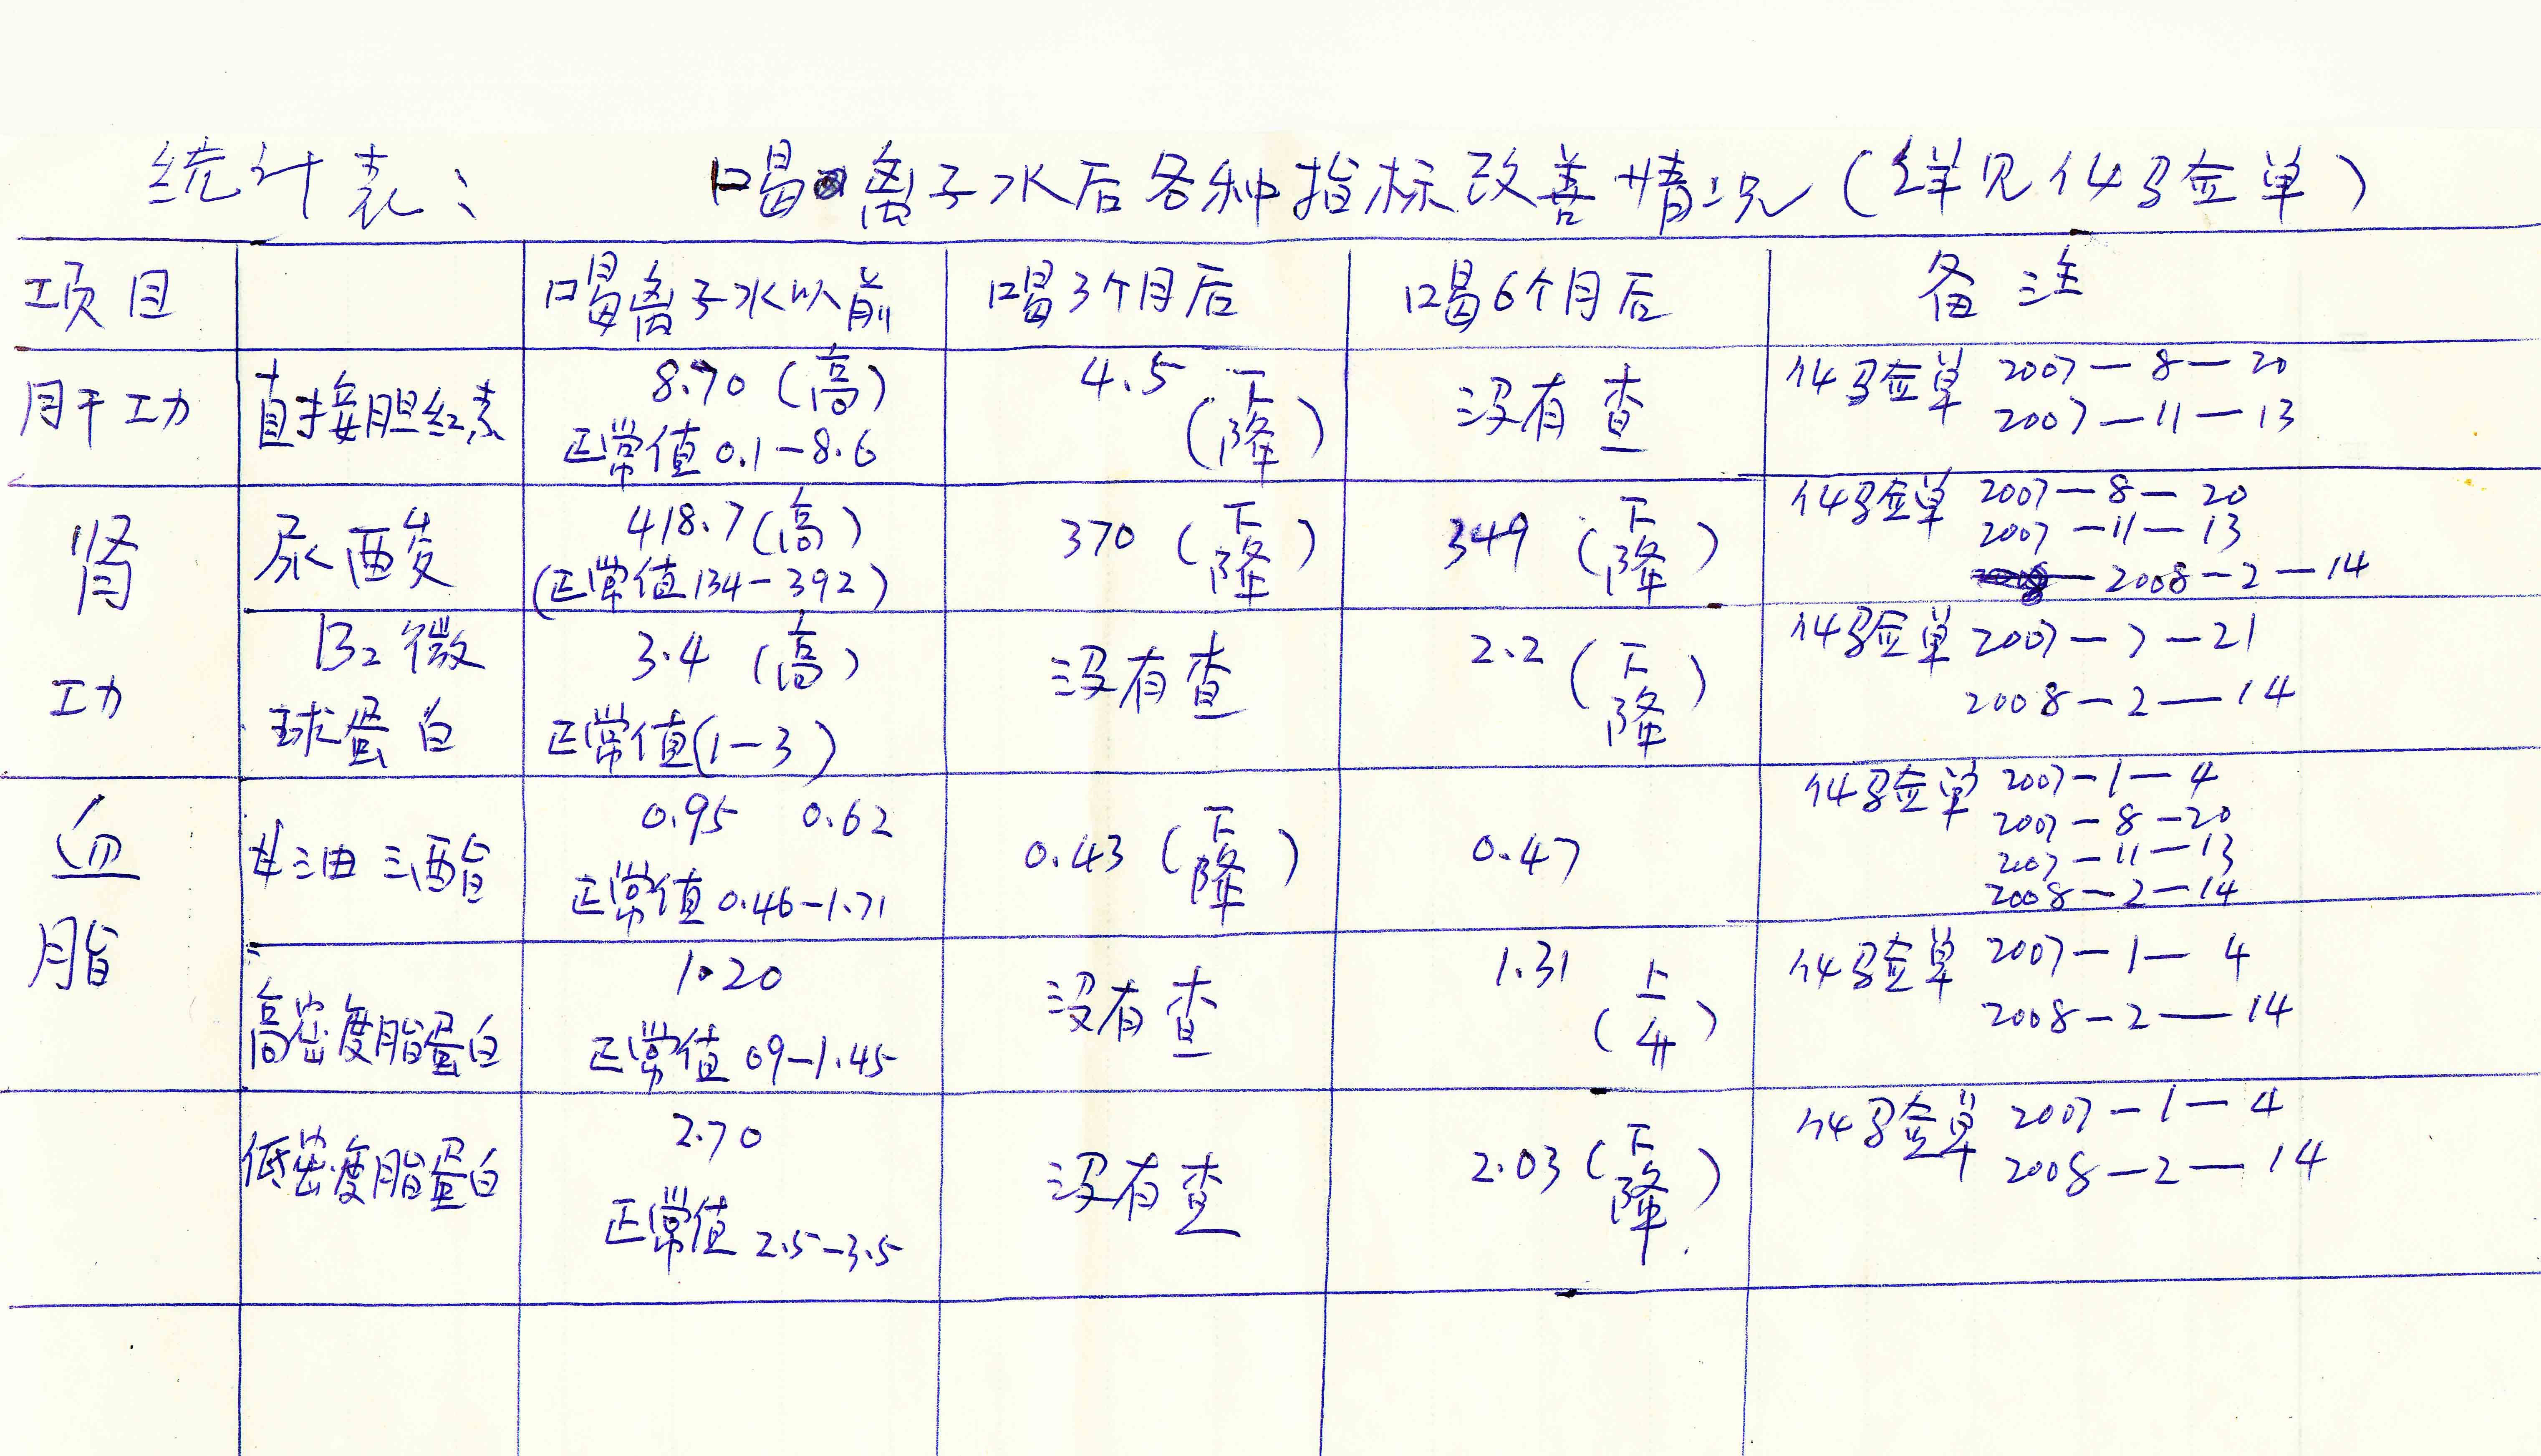 统计表： 喝离子水后各种指标改善情况（详见化验单）
项目 喝离子水以前 喝3个月后 喝6个月后 备注
肝功 直接胆红素 8.70（高） 4.5（下降） 没有查 化验单 2007－8－20
正常值0.1－8.6 2007－11－13
肾功 尿酸 418.7（高） 370（下降） 349（下降） 化验单 2007－8－20
（正常值134－392） 2007－11－13
2008－2－14
B2微球蛋白 3.4（高） 没有查 2.2（下降） 化验单 2007－7－21
正常值（1－3） 2008－2－14
血脂 甘油三酯 0.95 0.62 0.43（下降） 0.47 化验单 2007－1－4
正常值0.46－1.71 2007－8－20
207－11－13
2008－2－14
高密度脂蛋白 1.20 没有查 1.31（上升） 化验单 2007－1－4
正常值 09－1.45 2008－2－14
低密度脂蛋白 2.70 没有查 2.03（下降） 化验单 2007－1－4
正常值 2.5－3.5 2008－2－14